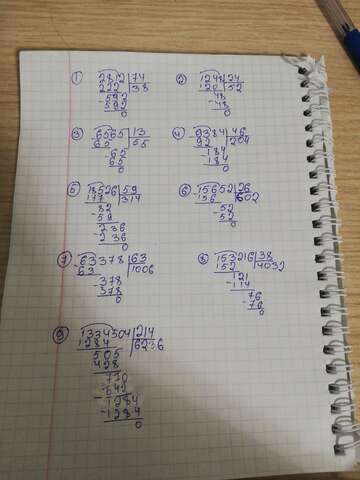 ① 2812 | 74
222 | 38
-592
592
0
② -1248 | 24
120 | 52
48
-48
0
③ -6565 | 13
65 | 55
-65
65
0
④ -9384 | 46
92 | 204
-184
184
0
⑤ -18526 | 59
177 | 314
-82
59
-236
236
0
⑥ -15652 | 26
156 | 602
-52
52
0
⑦ -63378 | 63
63 | 1006
-378
378
0
⑧ -153216 | 38
152 | 4032
121
-114
76
-76
0
⑨ -1334504 | 214
1284 | 6236
505
428
-770
642
-1284
1284
0